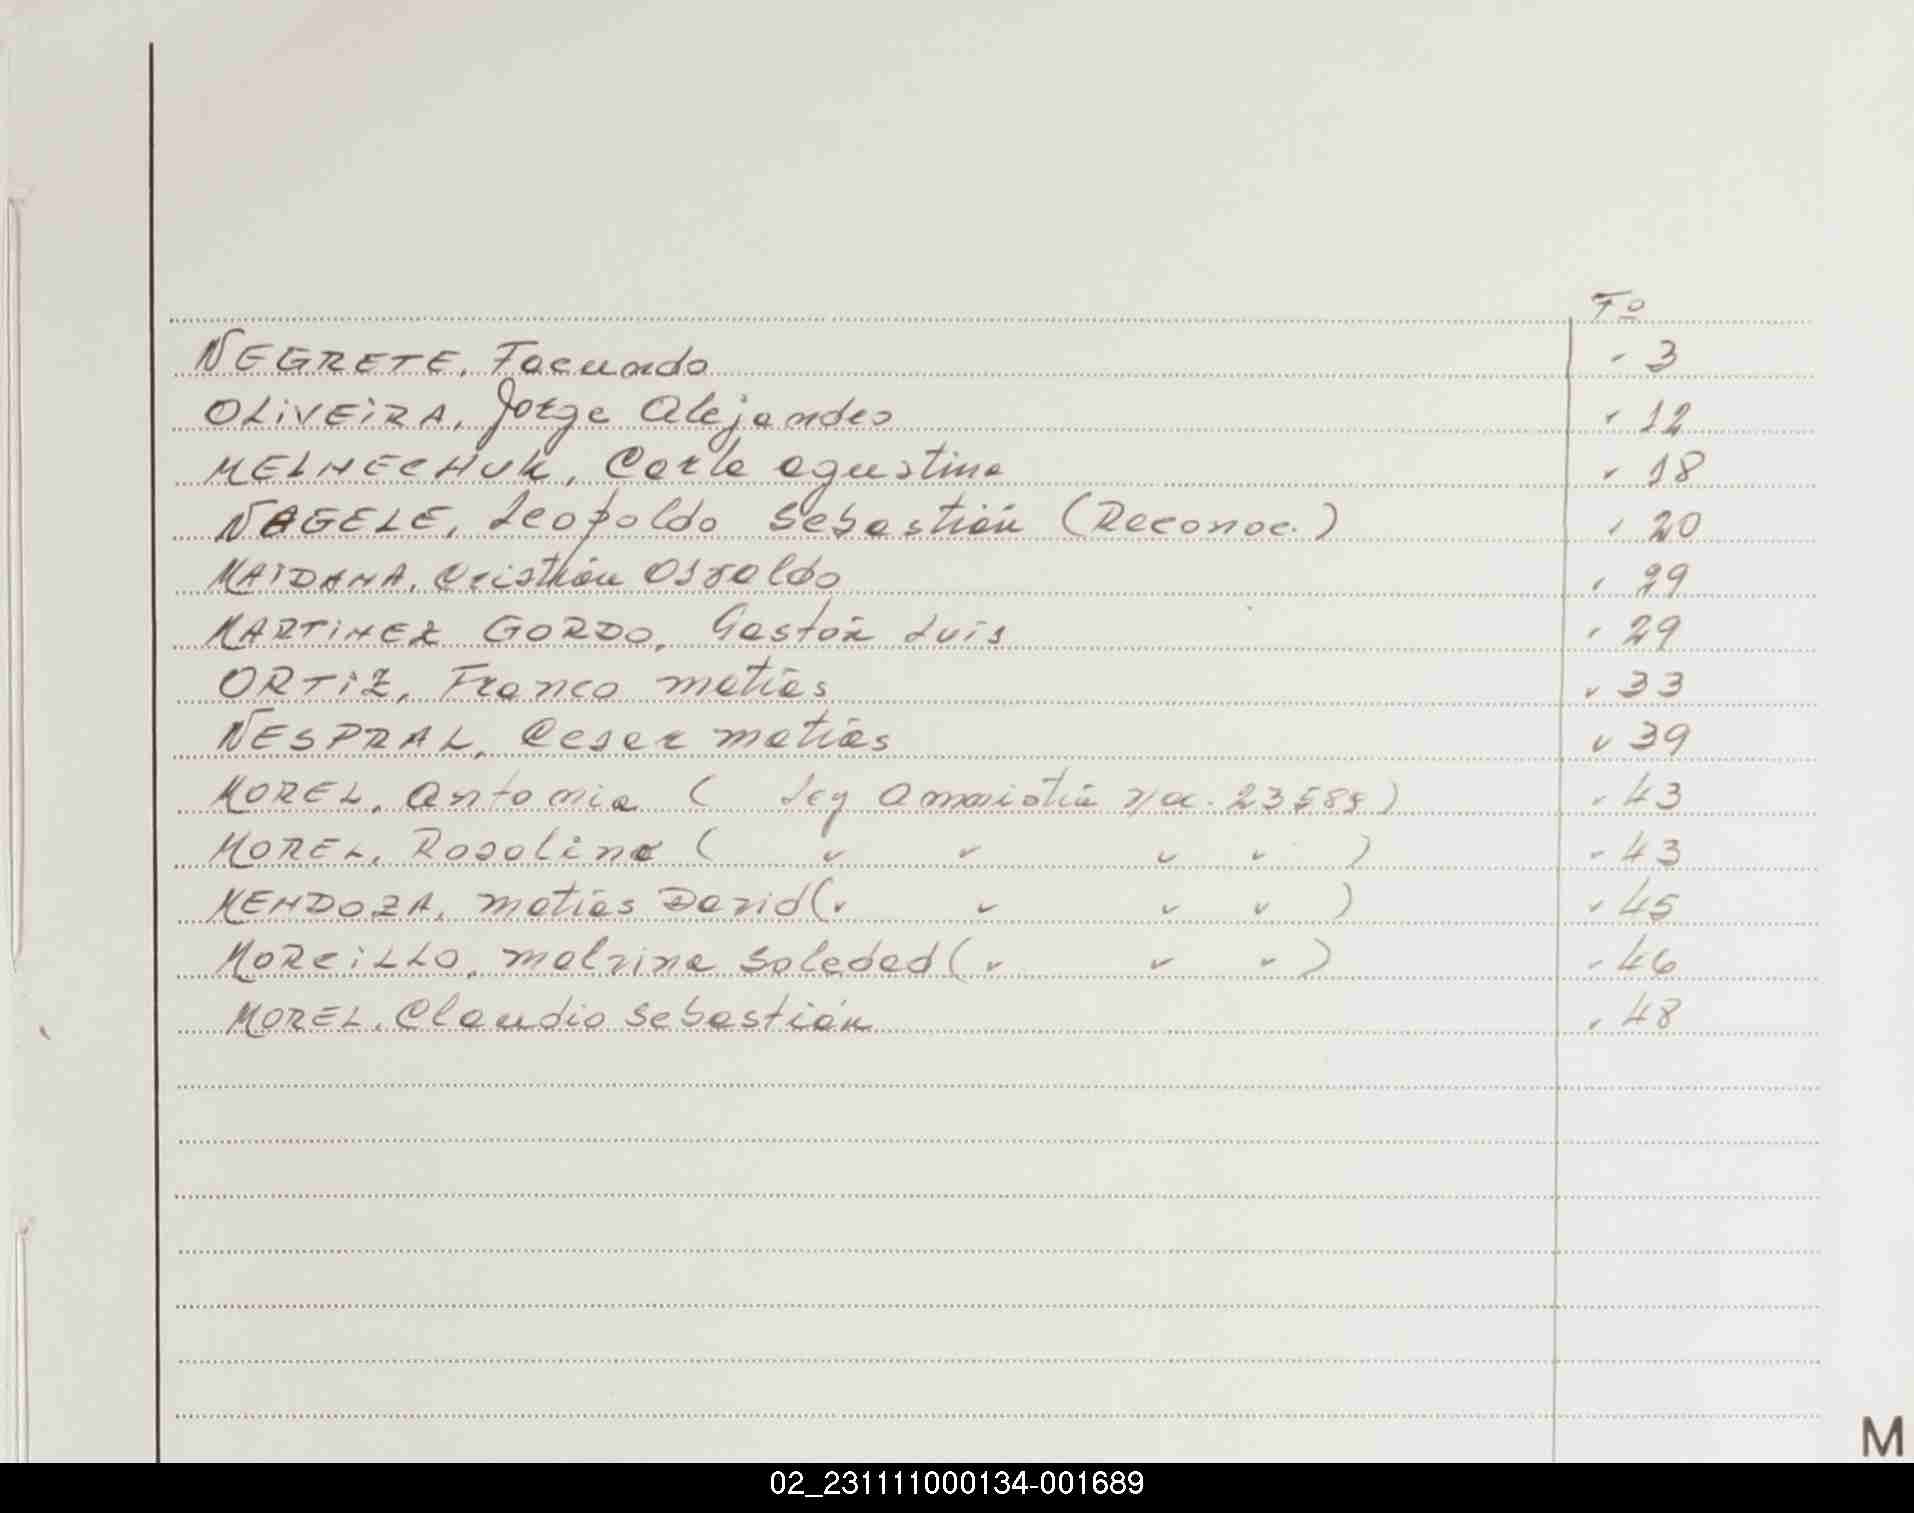 Fº
NEGRETE, Facundo 3
OLIVEIRA, Jorge Alejandro 12
MELNECHUK, Carla Agustina 18
NAGELE, Leopoldo Sebastián (Reconoc.) 20
MAIDANA, Cristián Osvaldo 29
MARTINEZ GORDO, Gastón Luis 29
ORTIZ, Franco Matías 33
NESPRAL, Cesar Matías 39
MOREL, Antonia ( Ley Amnistía 23585) 43
MOREL, Rosalina ( " " " " ) 43
MENDOZA, Matías David (" " " " ) 45
MORCILLO, Malvina Soledad (" " " ) 46
MOREL, Claudio Sebastián 48
M
02_231111000134-001689